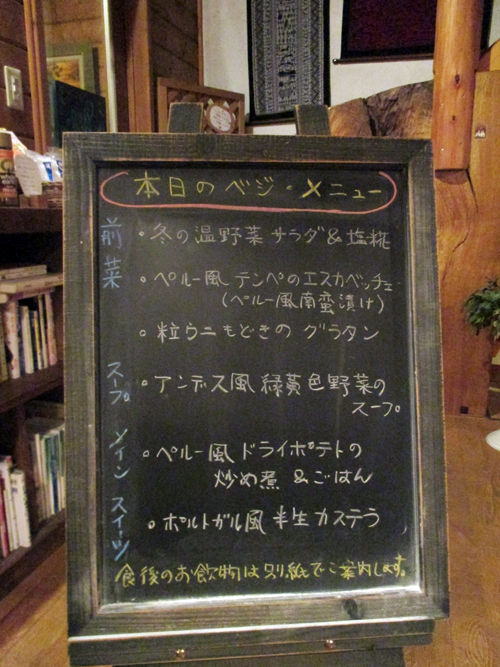 本日のベジ・メニュー
前菜
・冬の温野菜サラダ&塩糀
・ペルー風 テンペのエスカベッチェ
(ペルー風南蛮漬け)
・粒ウニもどきの グラタン
スープ
・アンデス風 緑黄色野菜の
スープ
メイン
・ペルー風 ドライポテトの
炒め煮 &ごはん
スイーツ
・ポルトガル風 半生カステラ
食後のお飲物は別紙でご案内します。